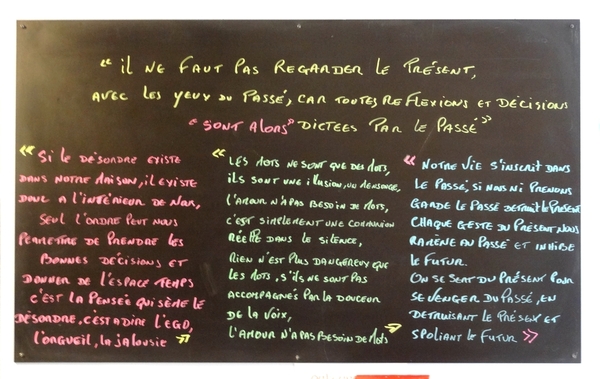 “ il NE FAUT PAS REGARDER LE PRÉSENT,
AVEC LES YEUX DU PASSÉ, CAR TOUTES REFLEXIONS ET DÉCISIONS
“SONT ALORS” DICTEES PAR LE PASSÉ”
“ Si le DÉSORDRE EXISTE
DANS NOTRE MAISON, il EXISTE
DONC A l'INTÉRIEUR DE NOUS,
SEUL l'ORDRE PEUT NOUS
PERMETTRE DE PRENDRE LES
BONNES DÉCISIONS ET
DONNER DE l'ESPACE TEMPS
C'EST LA PENSÉE QUI SÈME LE
DÉSORDRE, C'EST A DIRE l'EGO,
l'ORGUEIL, LA JALOUSIE ”
“ LES MOTS NE SONT QUE DES MOTS,
ILS SONT UNE ILLUSION, UN MENSONGE,
L'AMOUR N'A PAS BESOIN DE MOTS,
C'EST SIMPLEMENT UNE COMMUNION
RÉELLE DANS LE SILENCE,
RIEN N'EST PLUS DANGEREUX QUE
LES MOTS, S'ILS NE SONT PAS
ACCOMPAGNÉS PAR LA DOUCEUR
DE LA VOIX,
L'AMOUR N'A PAS BESOIN DE MOTS ”
“ NOTRE VIE S'INSCRIT DANS
LE PASSÉ, SI NOUS NI PRENONS
GARDE LE PASSÉ DETRUIT LE PRÉSENT
CHAQUE GESTE DU PRÉSENT NOUS
RAMÈNE AU PASSÉ ET INHIBE
LE FUTUR.
ON SE SERT DU PRÉSENT POUR
SE VENGER DU PASSÉ, EN
DETRUISANT LE PRÉSENT ET
SPOLIANT LE FUTUR ”